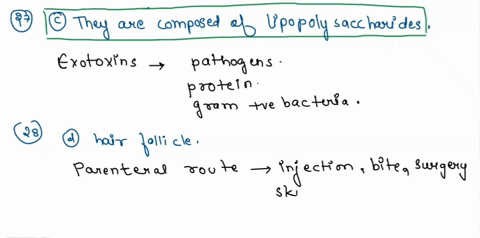 27 c They are composed of lipopolysaccharides.
Exotoxins → pathogens.
protein.
gram +ve bacteria.
28 d hair follicle.
Parenteral route → injection, bite, surgery
sk